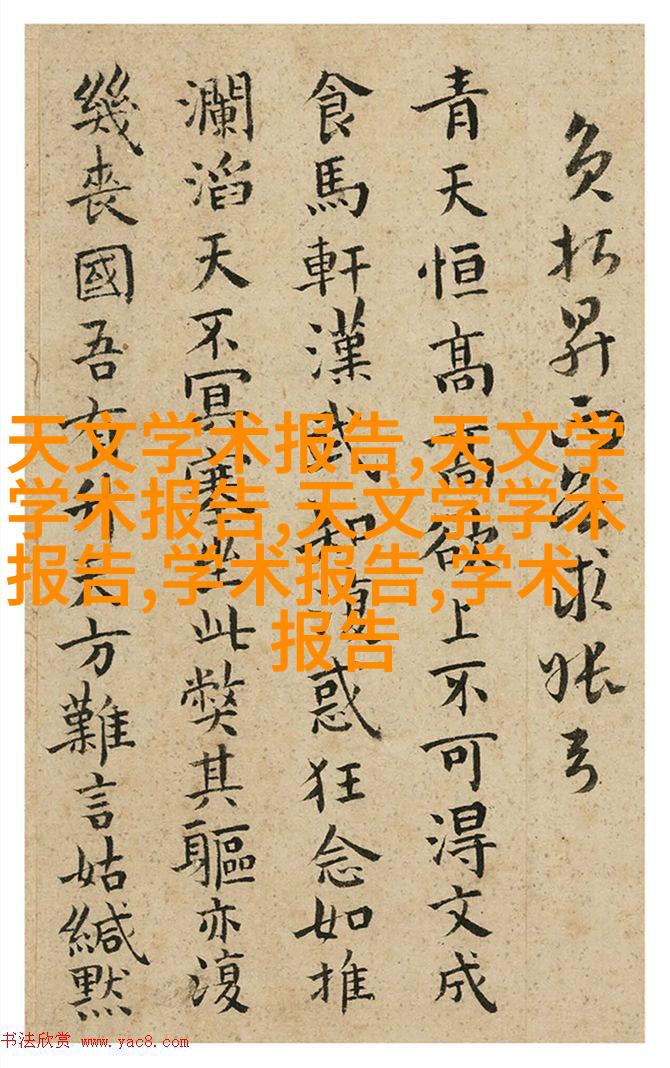 昇西求
青天恒高高欲上不可得文成
食馬軒漢武復惑狂念如推
瀾滔天不冥此弊其軀亦復
幾喪國吾有升天方難言姑緘默
天文学术报告,天文学
学术报告,天文学学术
报告,学术报告,学术
报告
书法欣赏 www.yac8.com